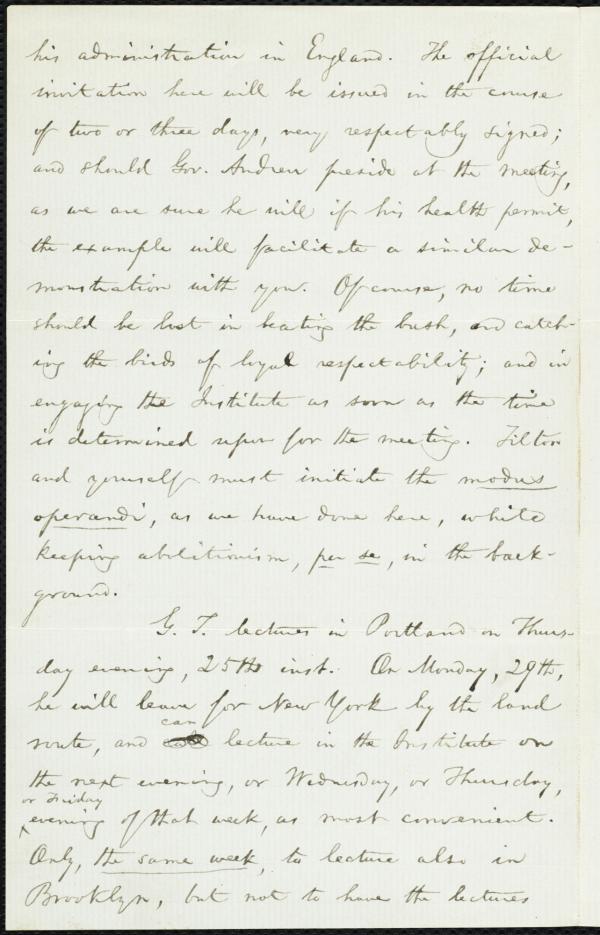 his administration in England. The official
invitation here will be issued in the course
of two or three days, very respectably signed;
and should Gov. Andrew preside at the meeting,
as we are sure he will if his health permit,
the example will facilitate a similar de-
monstration with you. Of course, no time
should be lost in beating the bush, and catch-
ing the birds of loyal respectability; and in
engaging the Institute as soon as the time
is determined upon for the meeting. Tilton
and yourself must initiate the modus
operandi, as we have done here, while
keeping abolitionism, per se, in the back-
ground.
G. T. lectures in Portland on Thurs-
day evening, 25th inst. On Monday, 29th,
he will leave for New York by the land
can
route, and lecture in the Institute on
the next evening, or Wednesday, or Thursday,
or Friday
evening of that week, as most convenient.
Only, the same week, to lecture also in
Brooklyn, but not to have the lectures